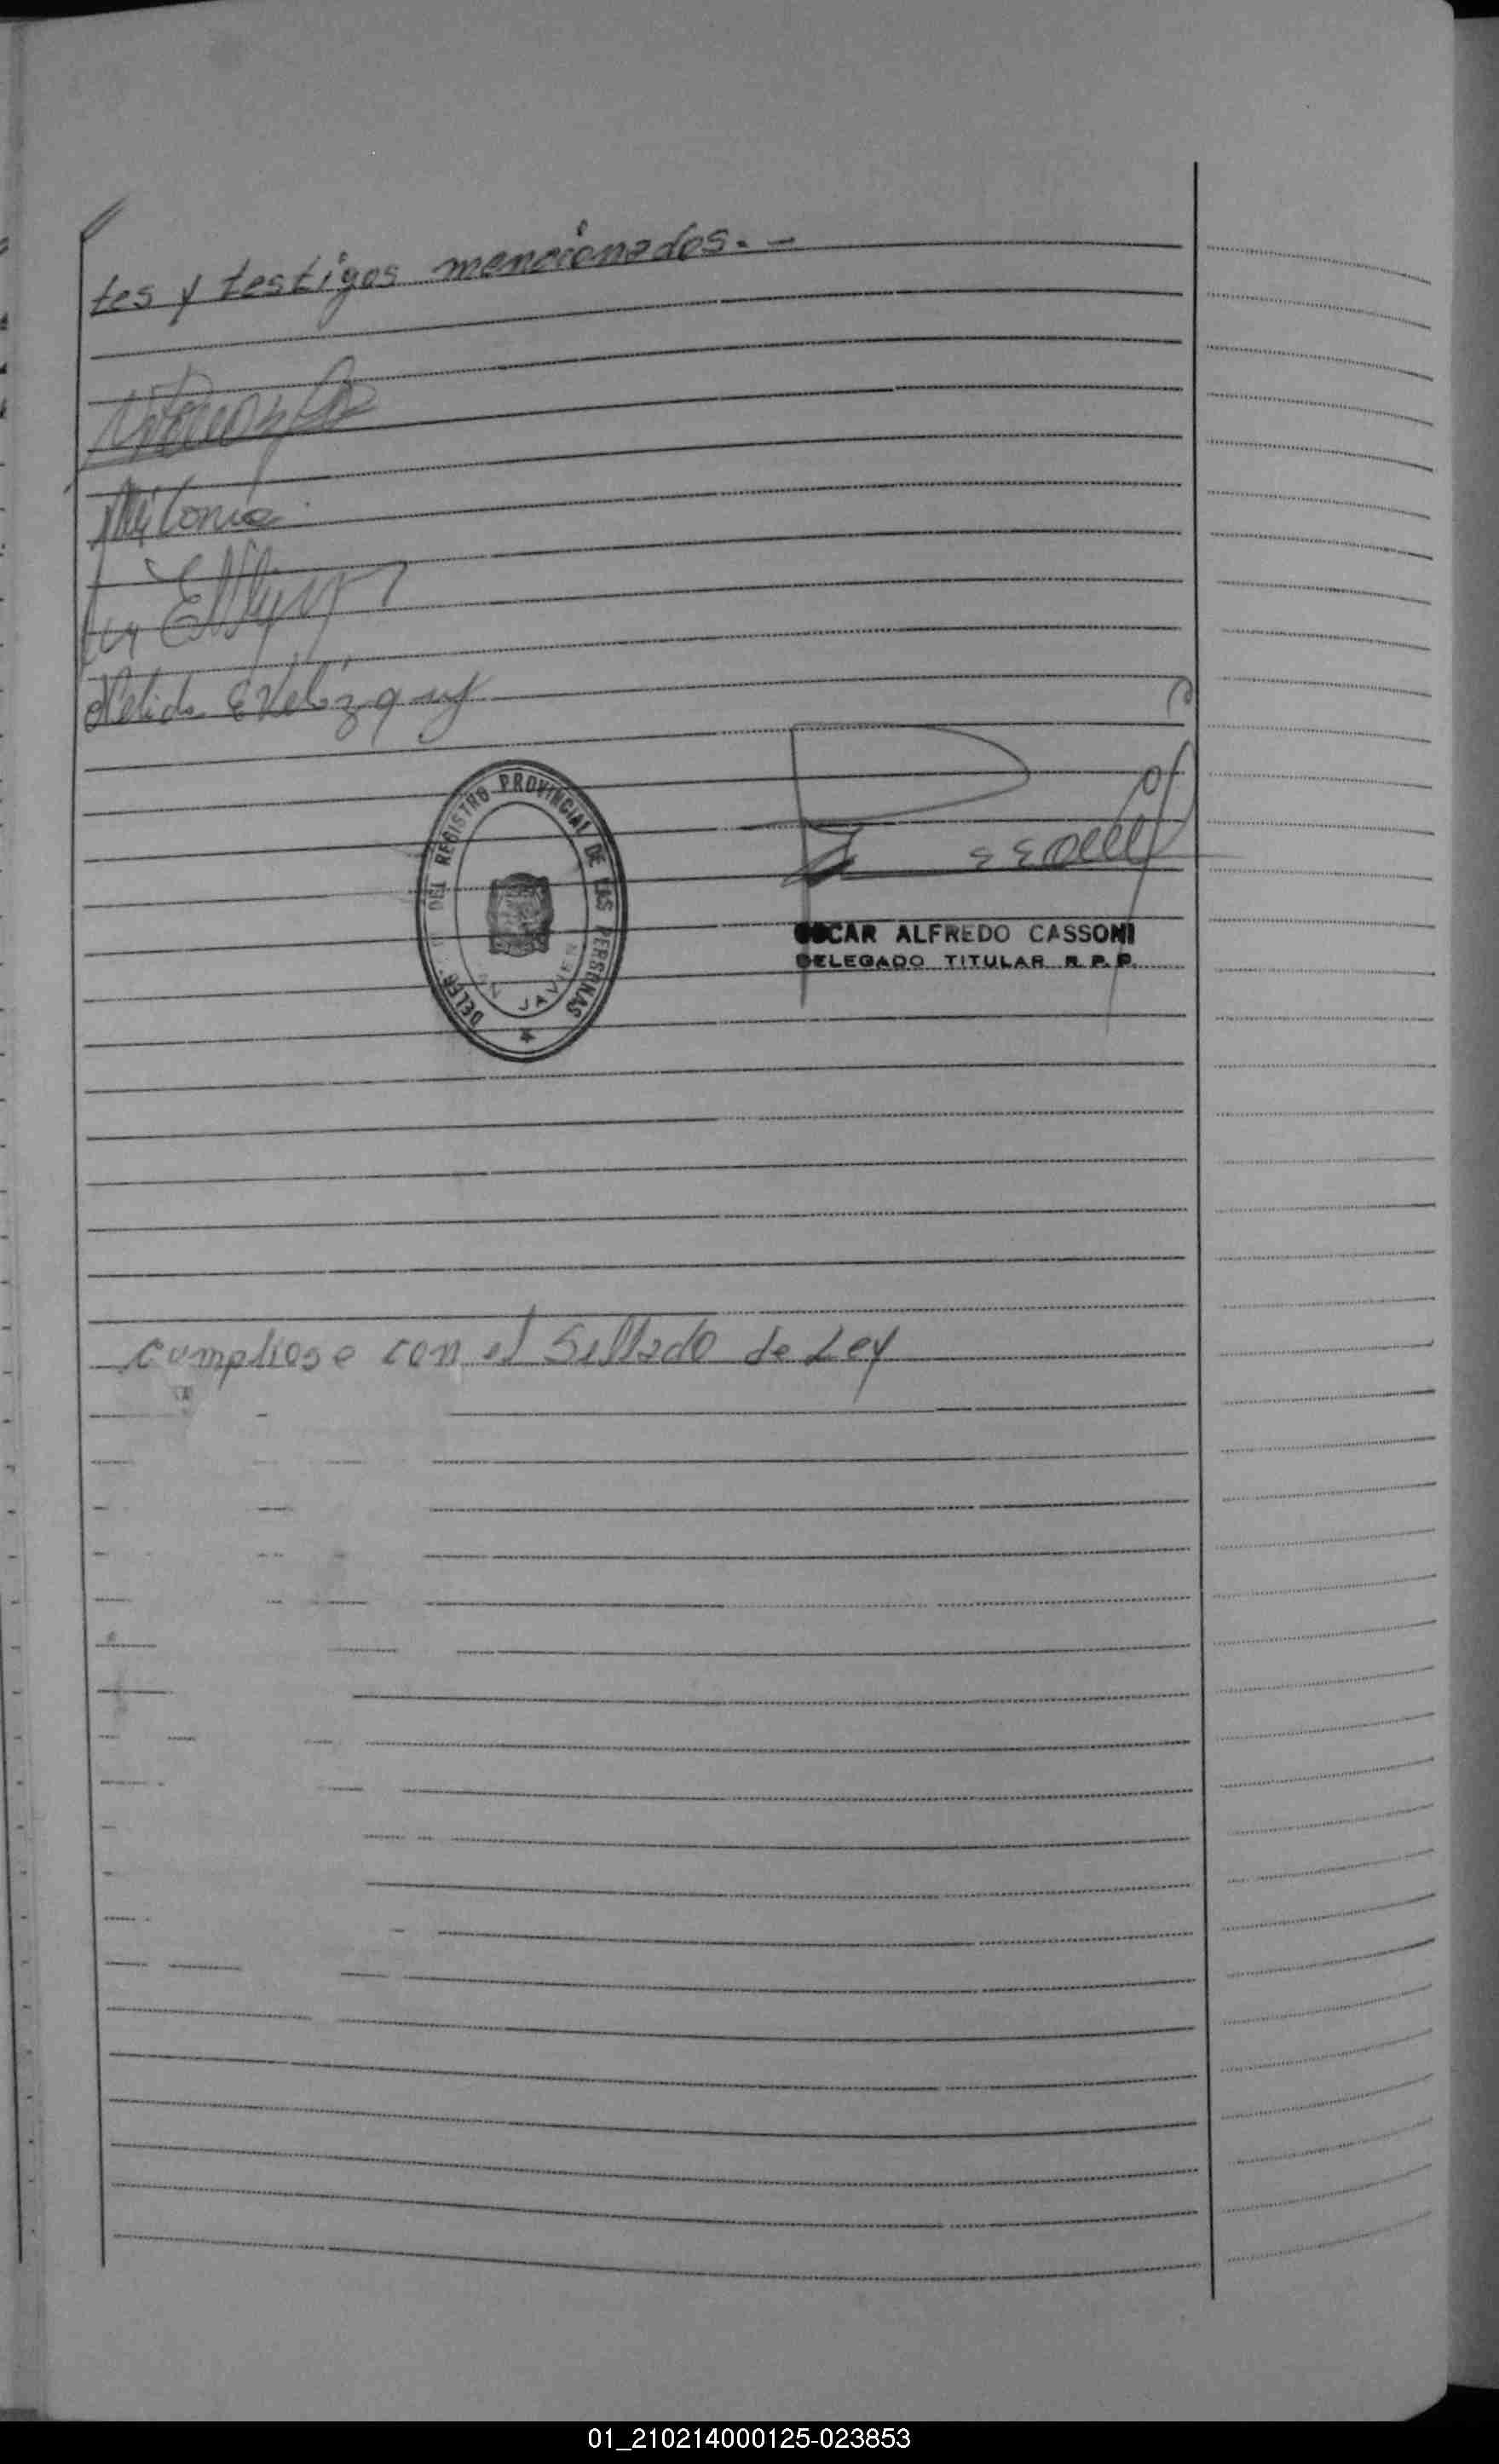 tes y testigos mencionados. -
Nelida E Velázquez
DELEG. DEL REGISTRO PROVINCIAL DE LAS PERSONAS
JAVIER
OSCAR ALFREDO CASSONI
DELEGADO TITULAR R. P. P.
Cumpliose con el Sellado de Ley
01_210214000125-023853